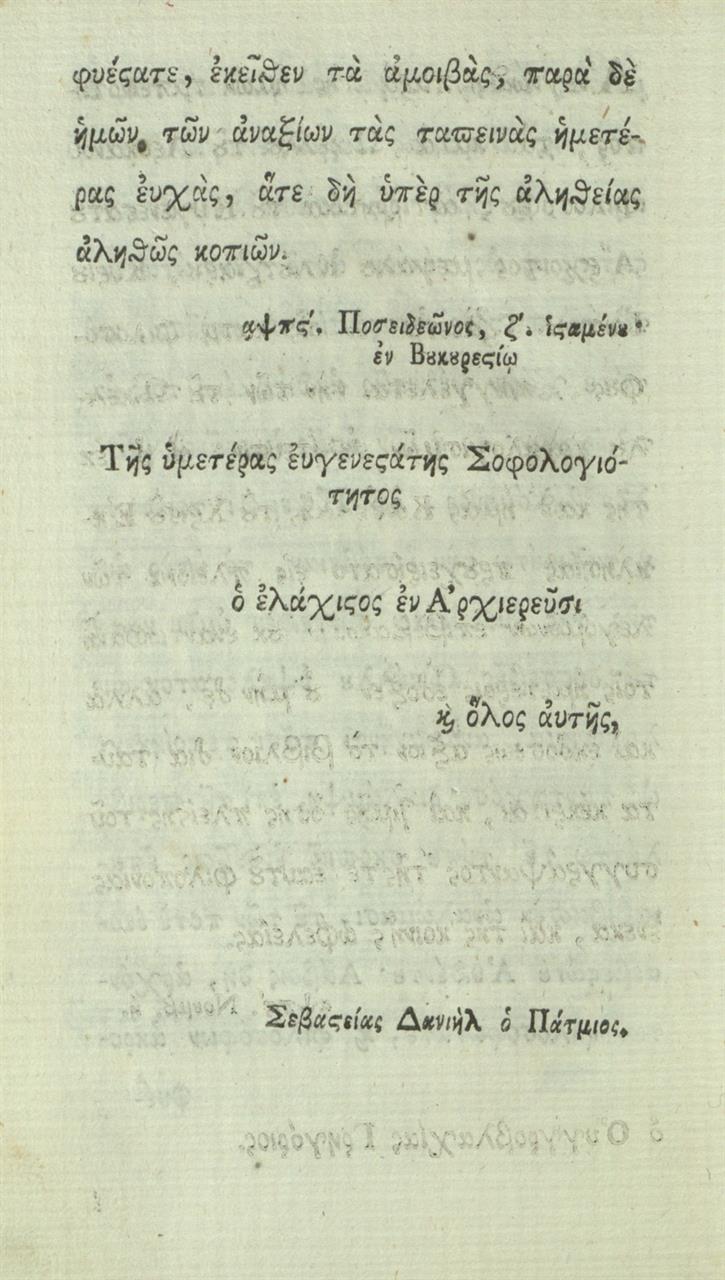 φυέϛατε, ἐκεῖθεν τὰ ἀμοιβὰς, παρὰ δὲ
ἡμῶν, τῶν ἀναξίων τὰς ταπεινὰς ἡμετέ-
ρας ἐυχὰς, ἅτε δὴ ὑπὲρ τῆς ἀληθείας
ἀληθῶς κοπιῶν.
αψπϛ'. Ποσειδεῶνος, ζ'. ἱϛαμένȣ·
ἐν Βȣκȣρεϛίῳ
Τῆς ὑμετέρας ἐυγενεϛάτης Σοφολογιό-
τητος
ὁ ἐλάχιϛος ἐν Ἀρχιερεῦσι
ϗ ὅλος ἀυτῆς,
Σεβαϛείας Δανιὴλ ὁ Πάτμιος.